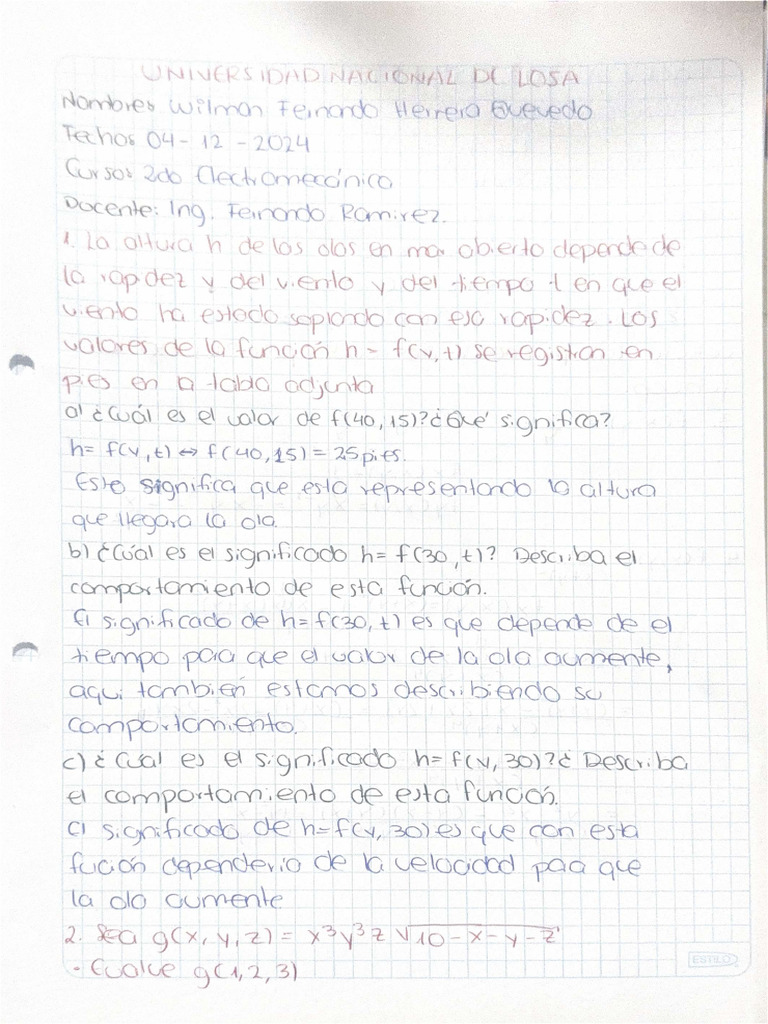 UNIVERSIDAD NACIONAL DE LOSA
Nombres Wilman Fernando Herrera Quevedo
Fechas 04-12-2024
Cursos 2do Electromecánica
Docente: Ing. Fernando Ramirez.
1. La altura h de las olas en mar abierto depende de
la rapidez y del viento y del tiempo t en que el
viento ha estado soplando con esa rapidez. Los
valores de la función h = f(v,t) se registran en
pies en la tabla adjunta
a) ¿Cuál es el valor de f(40,15)?¿Qué significa?
h = f(v,t) ↔ f(40,15) = 25 pies.
Esto significa que esta representando la altura
que llegara la ola.
b) ¿Cuál es el significado h = f(30,t)? Describa el
comportamiento de esta función.
El significado de h = f(30,t) es que depende de el
tiempo para que el valor de la ola aumente,
aqui también estamos describiendo su
comportamiento.
c) ¿Cual es el significado h = f(v,30)?¿ Describa
el comportamiento de esta función.
El significado de h = f(v,30) es que con esta
fución dependeria de la velocidad para que
la ola aumente
2. Sea g(x,y,z) = x³y³z √10-x-y-z
· Evalue g(1,2,3)
ESTILO